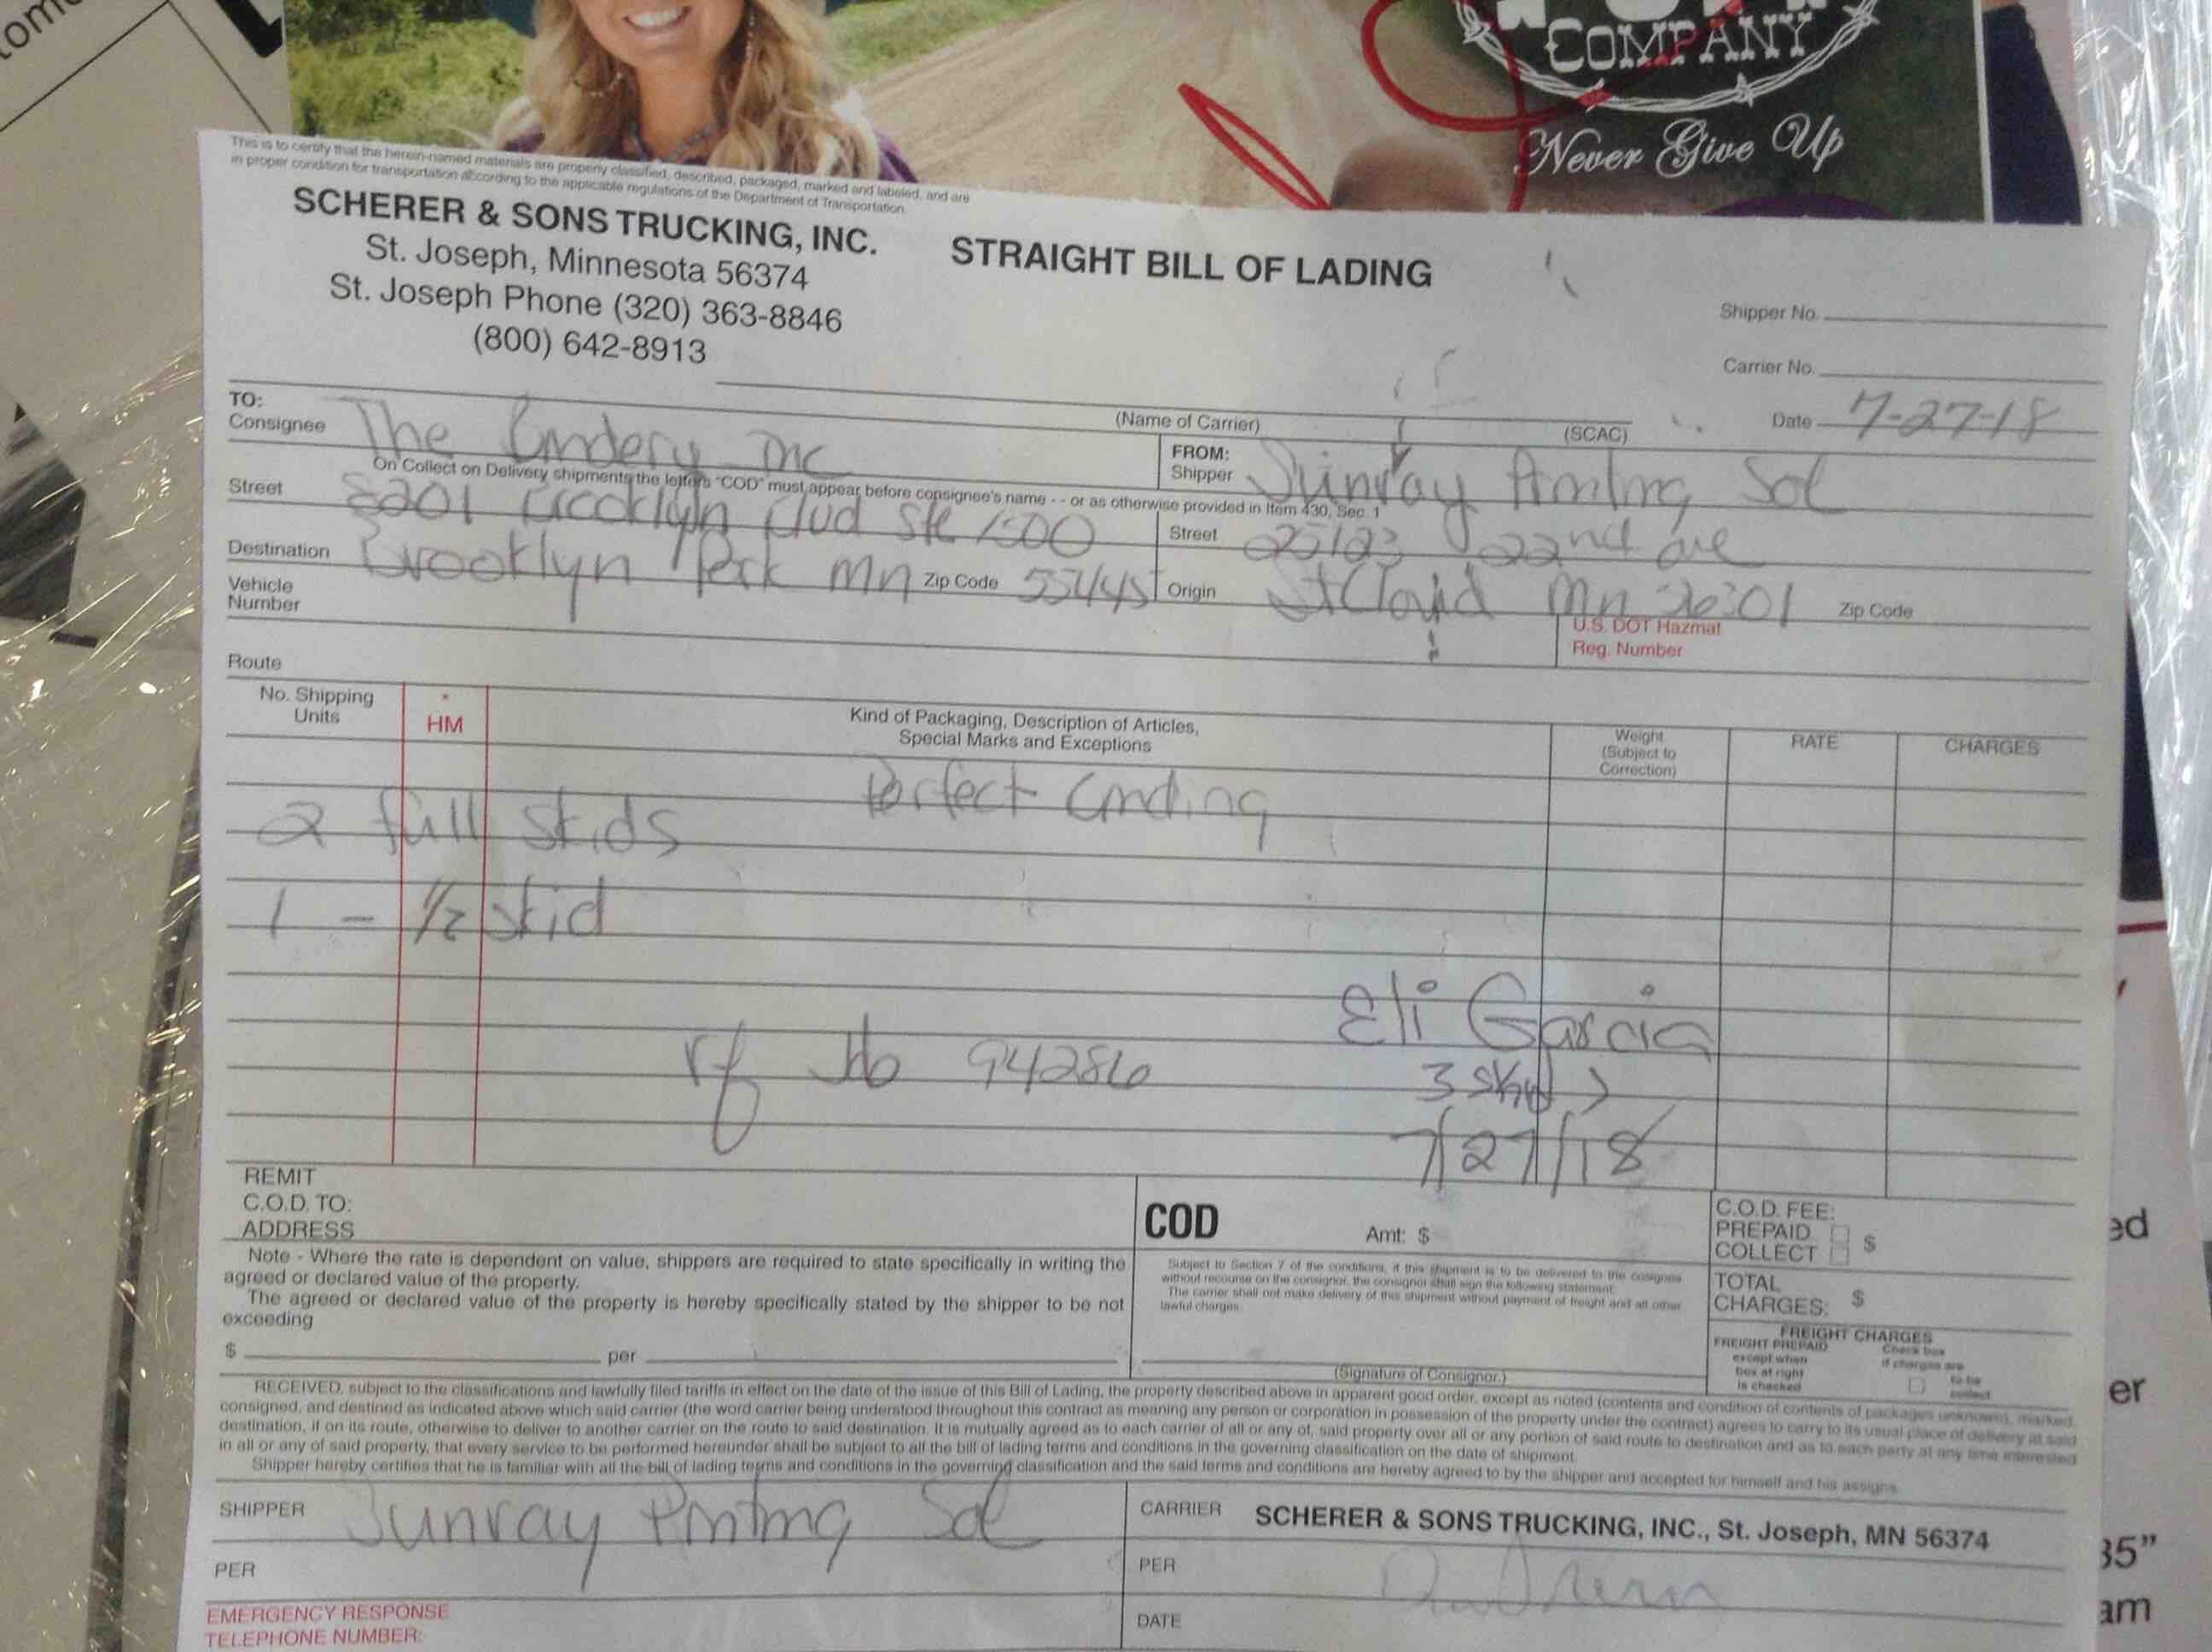 COMPANY
Never Give Up
This is to certify that the herein-named materials are properly classified, described, packaged, marked and labeled, and are
in proper condition for transportation according to the applicable regulations of the Department of Transportation.
SCHERER & SONS TRUCKING, INC.
St. Joseph, Minnesota 56374
St. Joseph Phone (320) 363-8846
(800) 642-8913
STRAIGHT BILL OF LADING
Shipper No.
Carrier No.
Date 7-27-18
(Name of Carrier)
(SCAC)
TO:
Consignee The Inc
FROM:
Shipper Sunray Sol
On Collect on Delivery shipments the letters "COD" must appear before consignee's name - - or as otherwise provided in Item 430, Sec. 1
Street 8201 Brooklyn Ste 1500
Street 22nd ave
Destination Brooklyn Park MN Zip Code 55445
Origin St Cloud Mn Zip Code
Vehicle
Number
U.S. DOT Hazmat
Reg. Number
Route
No. Shipping
Units
*
HM
Kind of Packaging, Description of Articles,
Special Marks and Exceptions
Weight
(Subject to
Correction)
RATE
CHARGES
Perfect
2 full skids
1 - 1/2 skid
Eli Garcia
rf Job 94286
3 skids
7/27/18
REMIT
C.O.D. TO:
ADDRESS
COD
Amt: $
C.O.D. FEE:
PREPAID
COLLECT $
Note - Where the rate is dependent on value, shippers are required to state specifically in writing the
agreed or declared value of the property.
The agreed or declared value of the property is hereby specifically stated by the shipper to be not
exceeding
$ per
Subject to Section 7 of the conditions, if this shipment is to be delivered to the cosignee
without recourse on the consignor, the consignor shall sign the following statement:
The carrier shall not make delivery of this shipment without payment of freight and all other
lawful charges.
(Signature of Consignor.)
TOTAL
CHARGES: $
FREIGHT CHARGES
FREIGHT PREPAID
except when
box at right
is checked
Check box
if charges are
to be
collect
RECEIVED, subject to the classifications and lawfully filed tariffs in effect on the date of the issue of this Bill of Lading, the property described above in apparent good order, except as noted (contents and condition of contents of packages unknown), marked,
consigned, and destined as indicated above which said carrier (the word carrier being understood throughout this contract as meaning any person or corporation in possession of the property under the contract) agrees to carry to its usual place of delivery at said
destination, if on its route, otherwise to deliver to another carrier on the route to said destination. It is mutually agreed as to each carrier of all or any of, said property over all or any portion of said route to destination and as to each party at any time interested
in all or any of said property, that every service to be performed hereunder shall be subject to all the bill of lading terms and conditions in the governing classification on the date of shipment.
Shipper hereby certifies that he is familiar with all the bill of lading terms and conditions in the governing classification and the said terms and conditions are hereby agreed to by the shipper and accepted for himself and his assigns.
SHIPPER Sunray Sol
CARRIER SCHERER & SONS TRUCKING, INC., St. Joseph, MN 56374
PER
PER
EMERGENCY RESPONSE
TELEPHONE NUMBER:
DATE
ed
er
35"
am